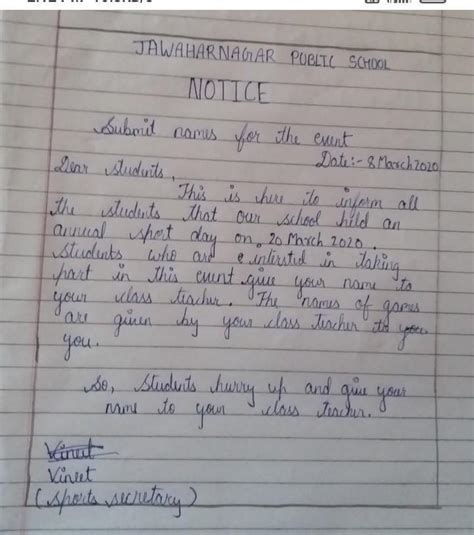 JAWAHARNAGAR PUBLIC SCHOOL
NOTICE
Submit names for the event
Date:- 8 March 2020
Dear students,
This is here to inform all
the students that our school held an
annual sport day on 20 March 2020.
Students who are intersted in taking
part in this event give your name to
your class teacher. The names of games
are given by your class teacher to you
you.
So, students hurry up and give your
name to your class teacher.
Vineet
Vineet
(sports secretary)